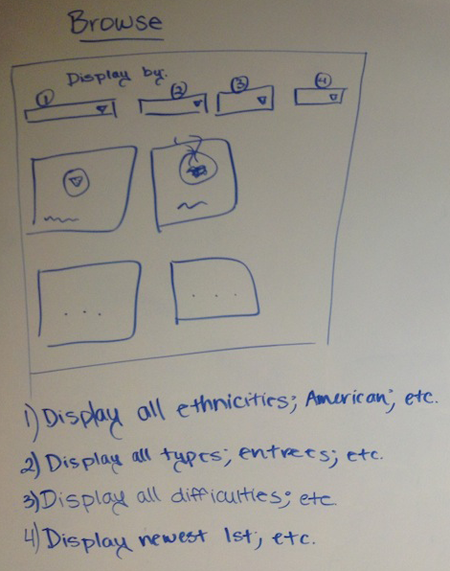 Browse
Display by:
1 2 3 4
. . . . . .
1) Display all ethnicities; American; etc.
2) Display all types; entrees; etc.
3) Display all difficulties; etc.
4) Display newest 1st; etc.